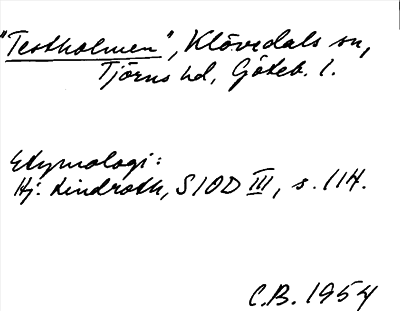 "Testholmen", Klövedals sn,
Tjörns hd, Göteb. l.
Etymologi:
Hj. Lindroth, SIOD III, s. 114.
C.B. 1954